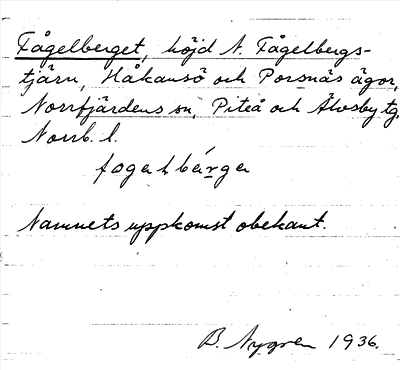 Fågelberget, höjd N. Fågelbergs-
tjärn, Håkansö och Porsnäs ägor,
Norrfjärdens sn, Piteå och Älvsby tg,
Norrb. l.
Namnets uppkomst obekant.
B. Nygren 1936.